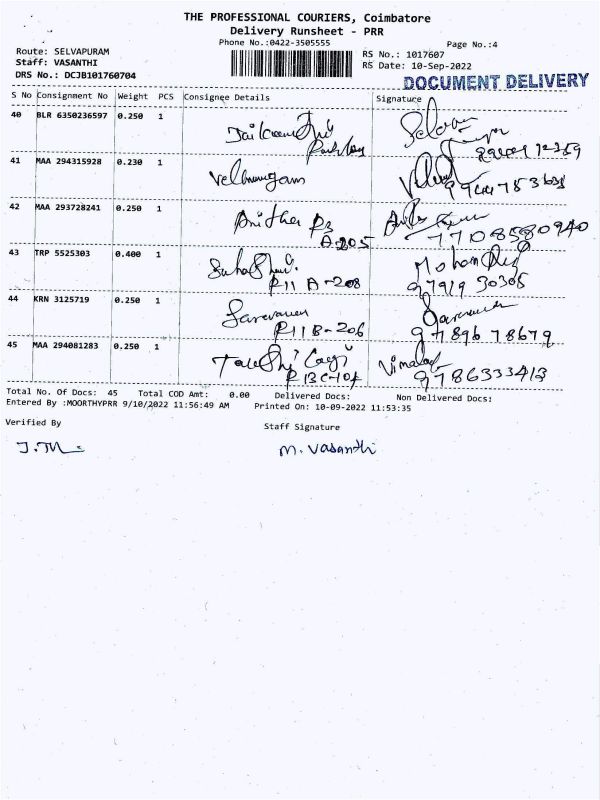 THE PROFESSIONAL COURIERS, Coimbatore
Delivery Runsheet - PRR
Phone No.:0422-3505555
Page No.:4
Route: SELVAPURAM
RS No.: 1017607
Staff: VASANTHI
RS Date: 10-Sep-2022
DRS No.: DCJB101760704
DOCUMENT DELIVERY
S No Consignment No Weight PCS Consignee Details Signature
40 BLR 6350236597 0.250 1
41 MAA 294315928 0.230 1 Velmurugan
42 MAA 293728241 0.250 1 Anitha
A-205 7708580940
43 TRP 5525303 0.400 1 Mohan
R11 A-208 97919 30305
44 KRN 3125719 0.250 1 Saravanan Saravanan
R11B-206 97896 78679
45 MAA 294081283 0.250 1 Vimala
9786333413
Total No. Of Docs: 45 Total COD Amt: 0.00 Delivered Docs: Non Delivered Docs:
Entered By :MOORTHYPRR 9/10/2022 11:56:49 AM Printed On: 10-09-2022 11:53:35
Verified By Staff Signature
M. Vasanthi